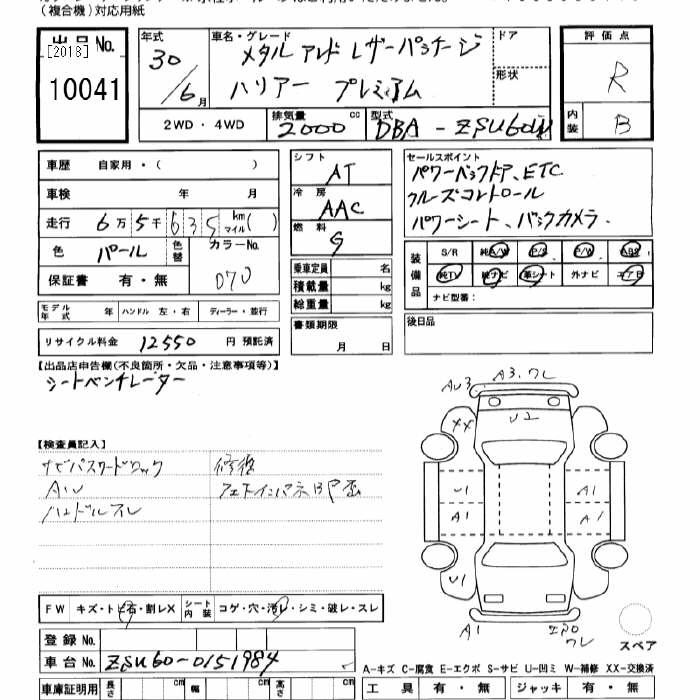 (複合機)対応用紙
出品No.
[2018]
10041
年式
30
/6月
車名・グレード
メタル アンド レザーパッケージ
ハリアー プレミアム
ドア
形状
評価点
R
内装
B
2WD ・ 4WD
排気量
2000 cc
型式
DBA - ZSU60W
車歴 自家用・( )
車検 年 月
走行 6万5千635 km マイル( )
色 パール
色替
カラーNo.
070
保証書 有・無
モデル年式 年
ハンドル 左・右
ディーラー・並行
リサイクル料金 12550 円 預託済
シフト
AT
冷房
AAC
燃料
G
乗車定員 名
積載量 kg
総重量 kg
書類期限
月 日
セールスポイント
パワーバックドア、ETC
クルーズコントロール
パワーシート、バックカメラ
装備品
S/R 純A/W P/S P/W ABS
純TV 純ナビ 革シート 外ナビ エアB
ナビ型番:
後日品
【出品店申告欄(不良箇所・欠品・注意事項等)】
シートベンチレーター
【検査員記入】
ナビパスワードロック
A・W
ハンドルスレ
修復
FW キズ・トビ石・割レX
シート内装 コゲ・穴・汚レ・シミ・破レ・スレ
登録No.
車台No. ZSU60-0151984
車庫証明用 長さ cm 幅 cm 高さ cm
AU3
A3.ワレ
XX
U2
U1
A1
A1
A1
U1
A1
ワレ
スペア
A-キズ C-腐食 E-エクボ S-サビ U-凹ミ W-補修 XX-交換済
工具 有・無 ジャッキ 有・無